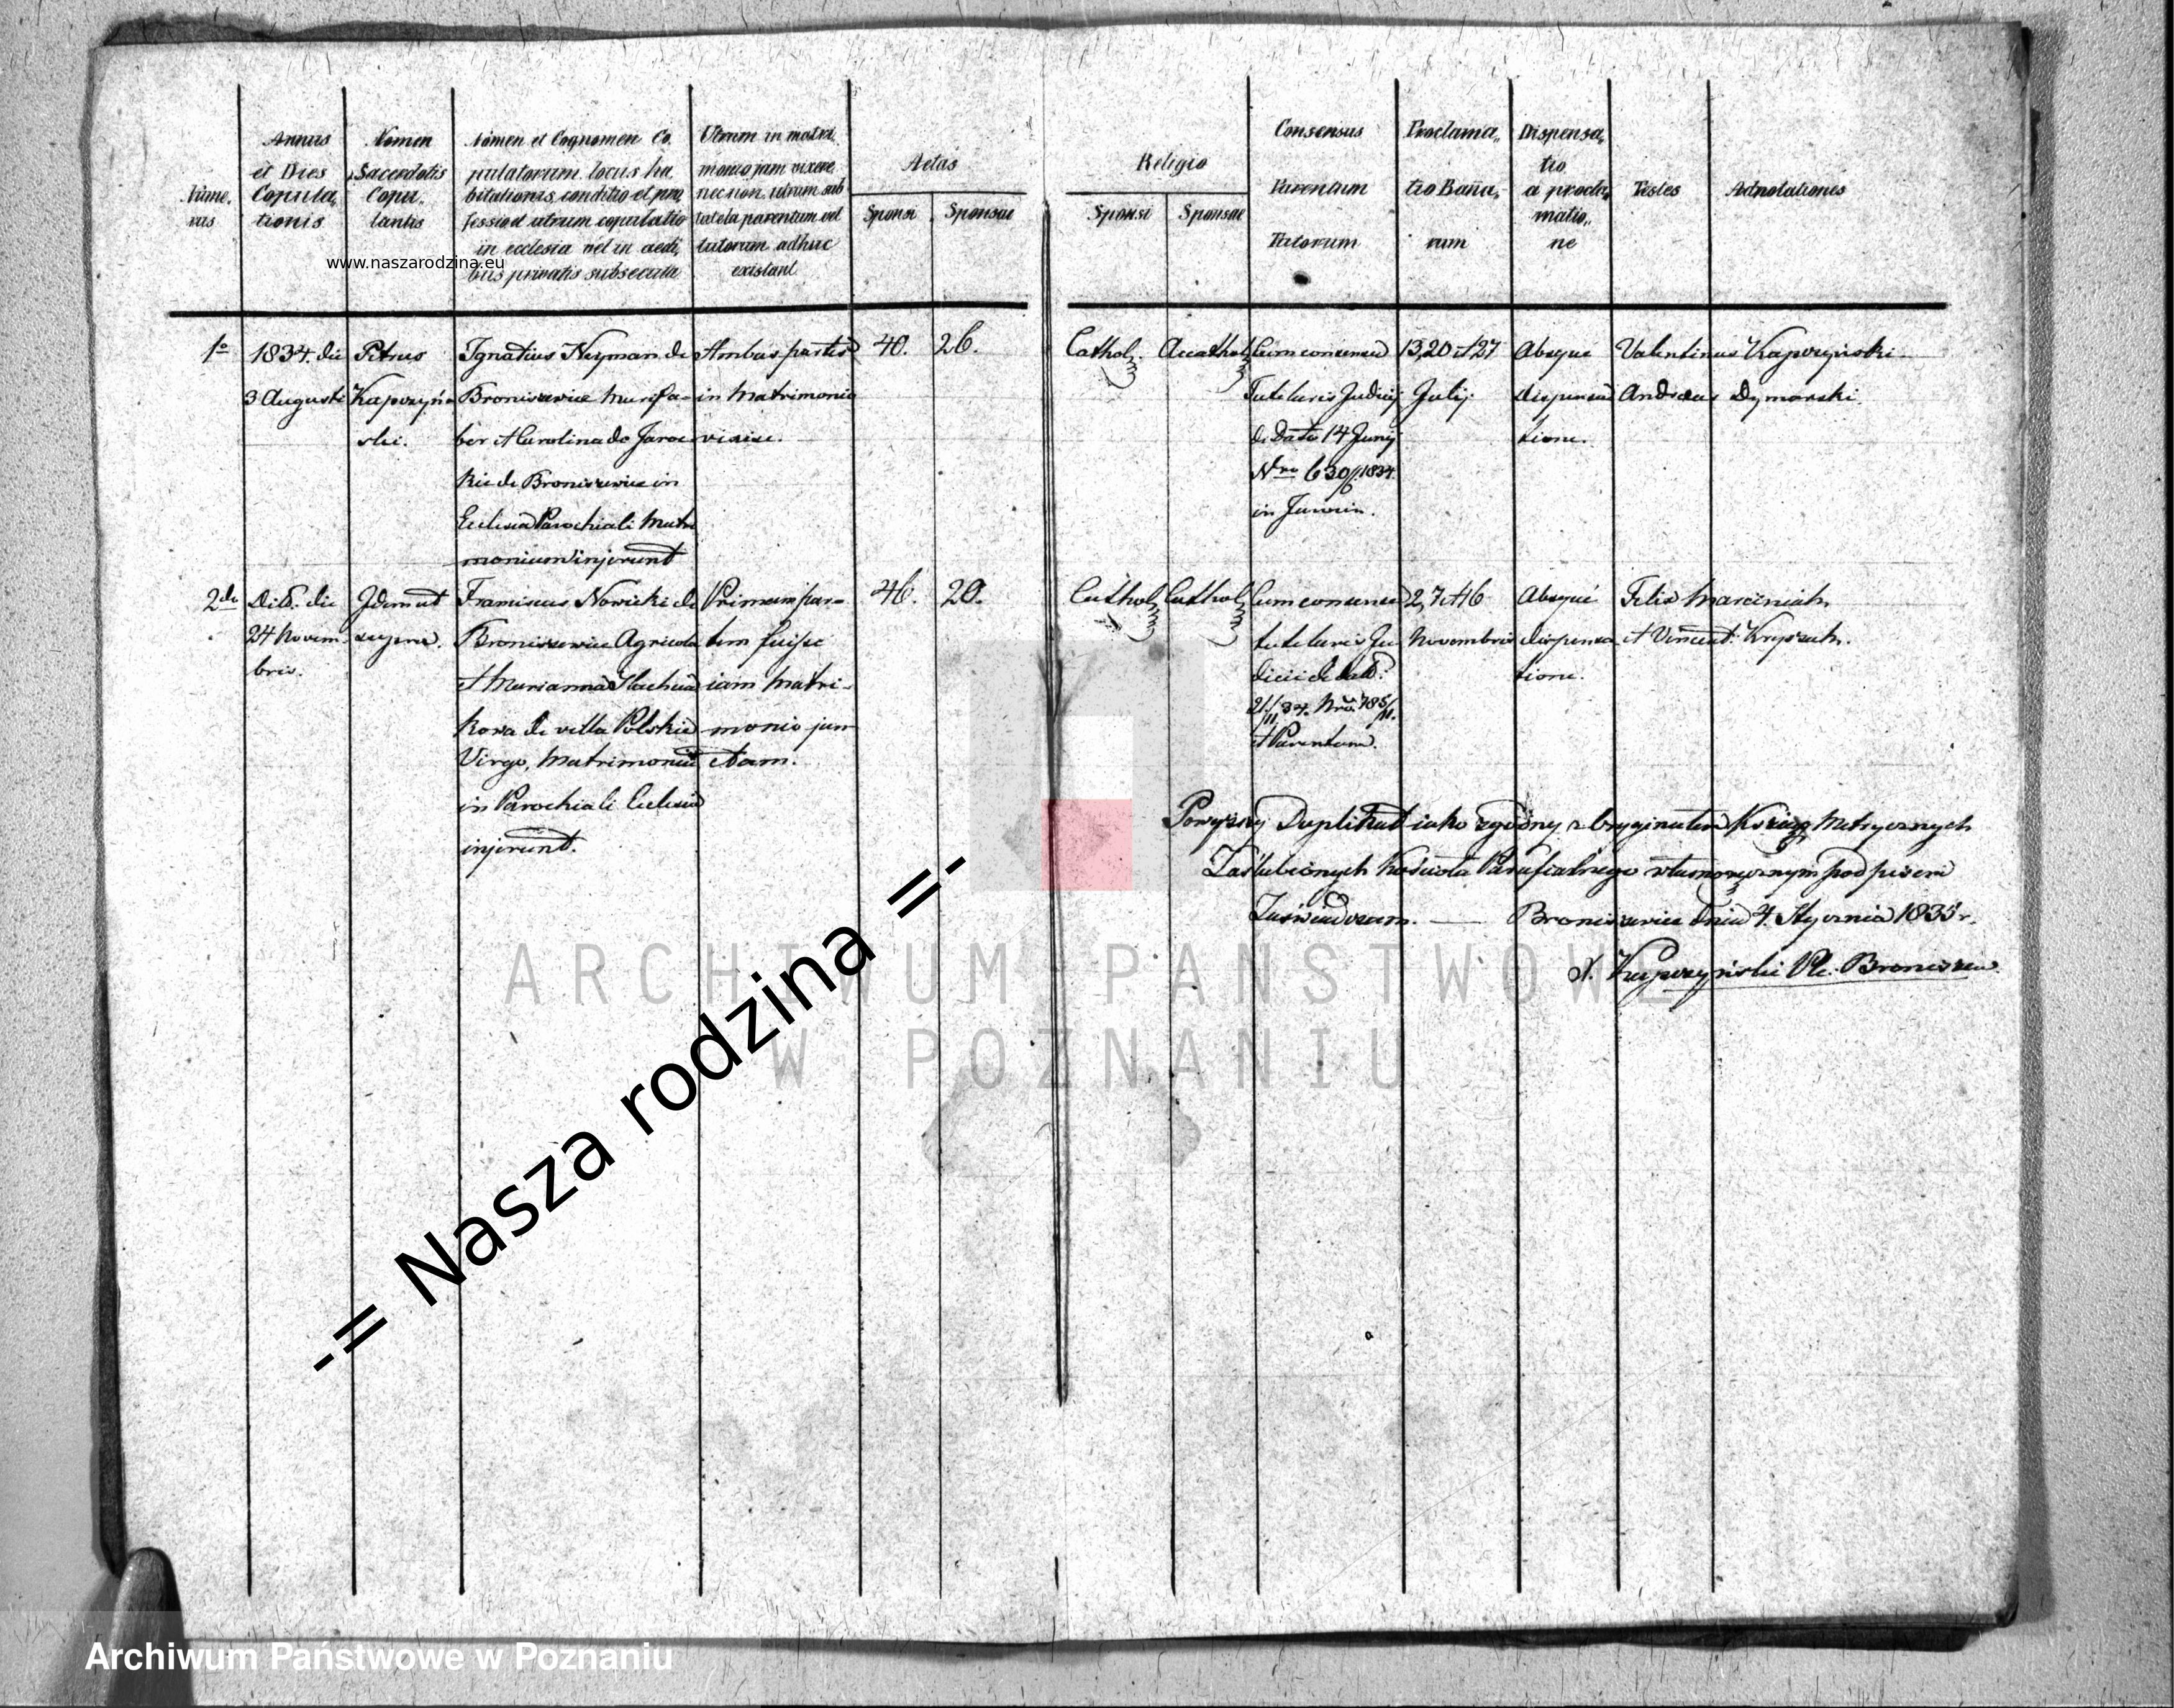 Nume,
rus
Annus
et Dies
Copula,
tionis
Nomen
Sacerdotis
Copu,,
lantis
Nomen et Cognomen Co,
pulatorum, locus ha
bitationis, conditio et pro,
fessio et utrum copulatio
in ecclesia vel in aedi,
bus privatis subsecuta
Utrum in matri,
monio jam vixere
nec non utrum sub
tutela parentum vel
tutorum adhuc
existant
Aetas
Sponsi
Sponsae
Religio
Sponsi
Sponsae
Consensus
Parentum
Tutorum
Proclama,,
tio Bañu,
rum
Dispensa,
tio
a procla,
matio,,
ne
Testes
Adnotationes
www.naszarodzina.eu
1º
1834. die
3 Augusti
Petrus
Kapczyń-
ski.
Ignatius Neyman de
Broniszewice Murifa-
ber et Carolina de Jaroc
kie de Broniszewice in
Ecclesia Parochiali Matri
monium injerunt
Ambas partes
in Matrimonio
vixisse.
40.
26.
Cathol.
Accathol
Cum consensu
Tutelaris Judicij
de Dato 14 Junij
Nro 630/6 1834.
in
13, 20 et 27
Julij.
Absque
dispensa
tione.
Valentinus Kapczyński.
Andreas Dymarski.
2do
Dito. die
24 Novem-
bris.
Idem ut
supra.
Franciscus Nowicki de
Broniszewice Agricola
et Marianna
kowa de villa Polskie
Virgo, Matrimonium
in Parochiali Ecclesia
injerunt.
Primam par-
tem fuisse
iam Matri-
monio jun
ctam.
46.
20.
Cathol
Cathol
Cum consensu
tutelaris Ju
dicii de dato
21/11 34. Nro. 785/11.
et Parentum.
2, 7 et 16
Novembris
Absque
dispensa
tione.
Felix Marciniak
et Vincent. Krysztak.
Powyższy Duplikat iako zgodny z oryginałem Xsiąg Metrycznych
Zaślubionych Kościoła Parafialnego własnoręcznym podpisem
Zaświadczam. — Broniszewice dnia 4. Stycznia 1835 r.
X. Kapczyński Pl. Broniszew.
ARCHIWUM PAŃSTWOWE
W POZNANIU
-= Nasza rodzina =-
Archiwum Państwowe w Poznaniu